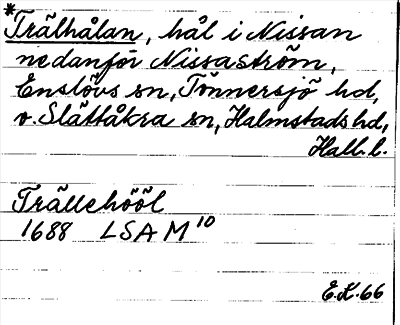 *Trälhålan, hål i Nissan
nedanför Nissaström,
Enslövs sn, Tönnersjö hd,
o. Slättåkra sn, Halmstads hd,
Hall. l.
Trällehööl
1688 LSA M 10
E.K. 66